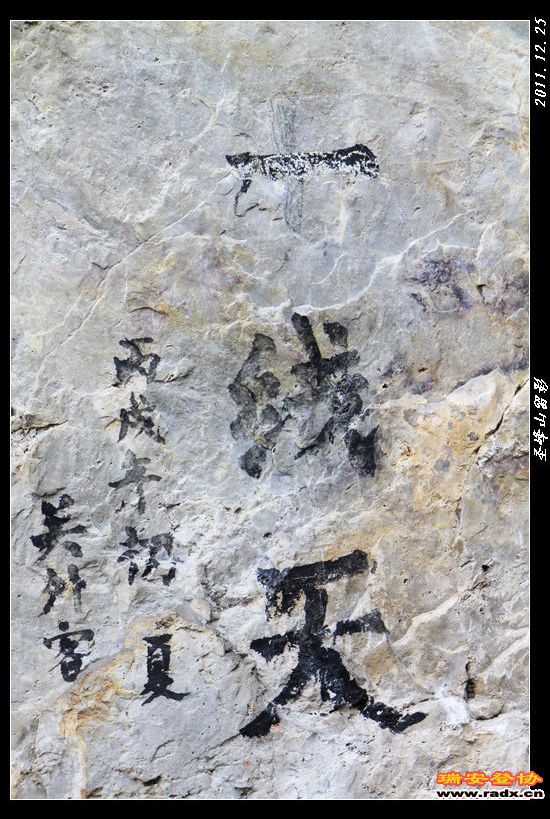 一线天
丙戌年初夏
吴 客
2011.12.25
圣峰山留影
瑞安登协
www.radx.cn